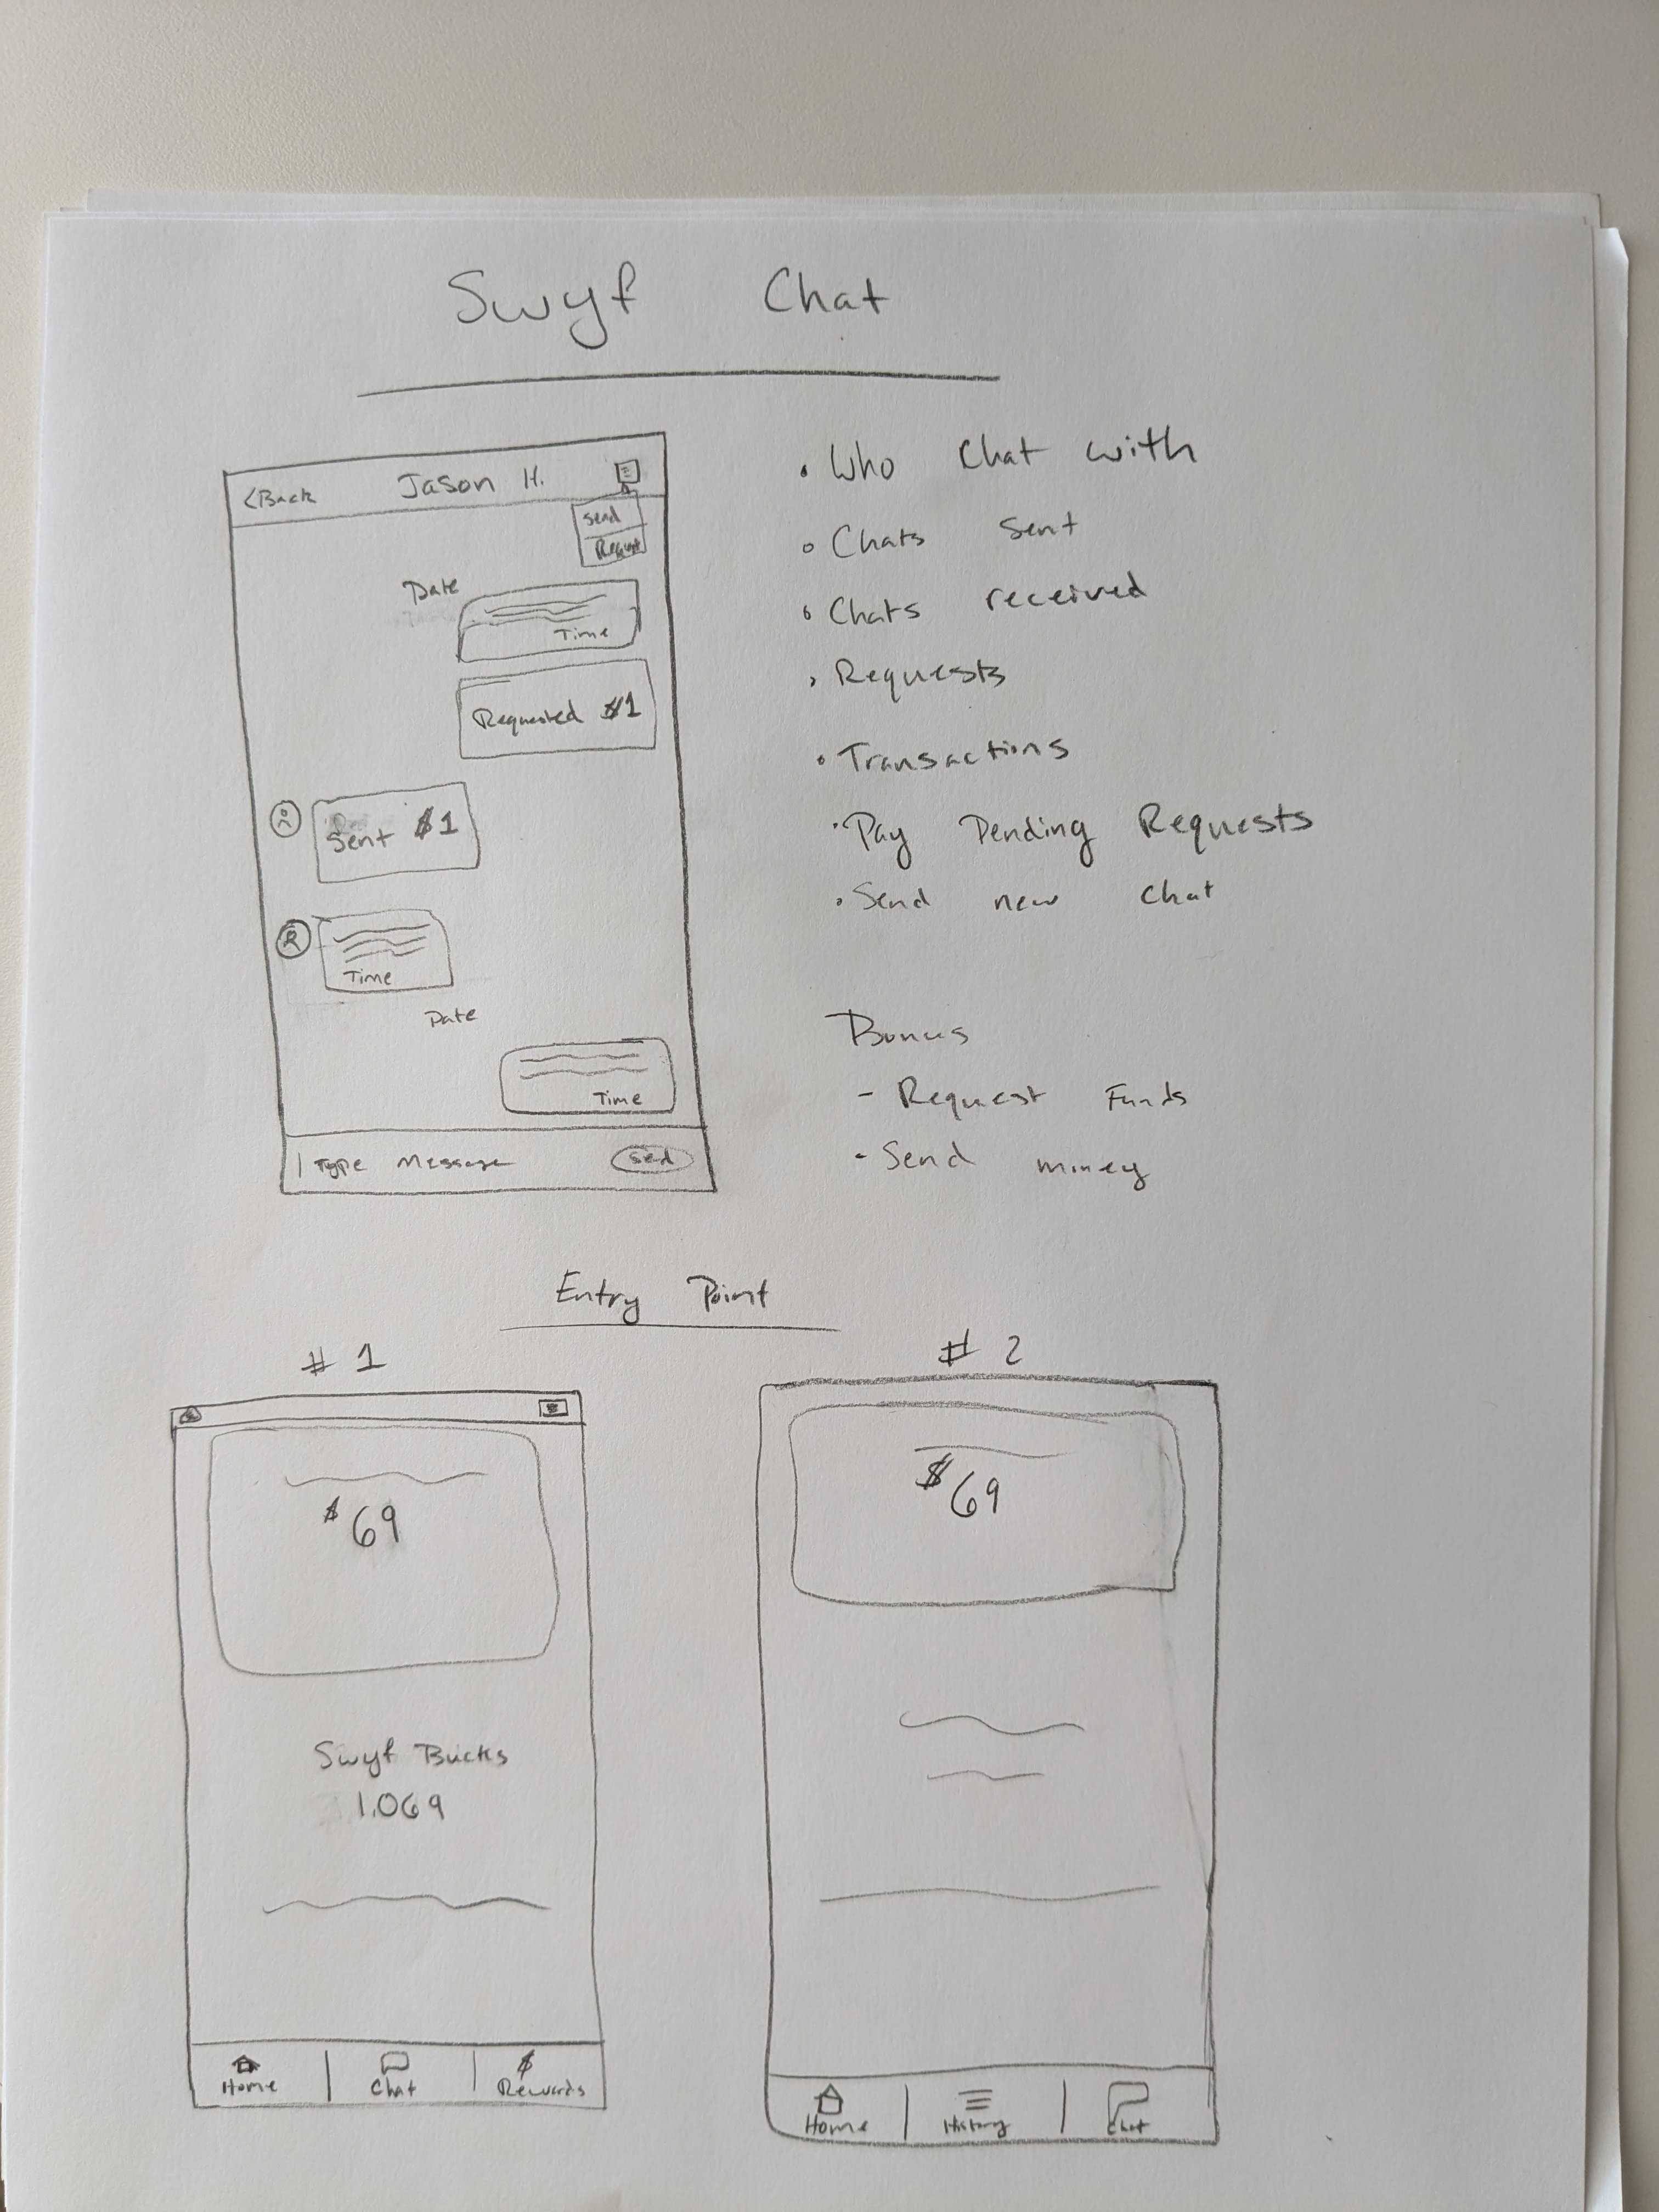 Swyf Chat
<Back Jason H.
Send
Request
Date
Time
Requested $1
Sent $1
Time
Date
Time
Type Message Send
• Who Chat with
• Chats Sent
• Chats received
• Requests
• Transactions
• Pay Pending Requests
• Send new Chat
Bonus
- Request Funds
- Send money
Entry Point
# 1
$69
Swyf Bucks
1,069
Home Chat $ Rewards
# 2
$69
Home History Chat